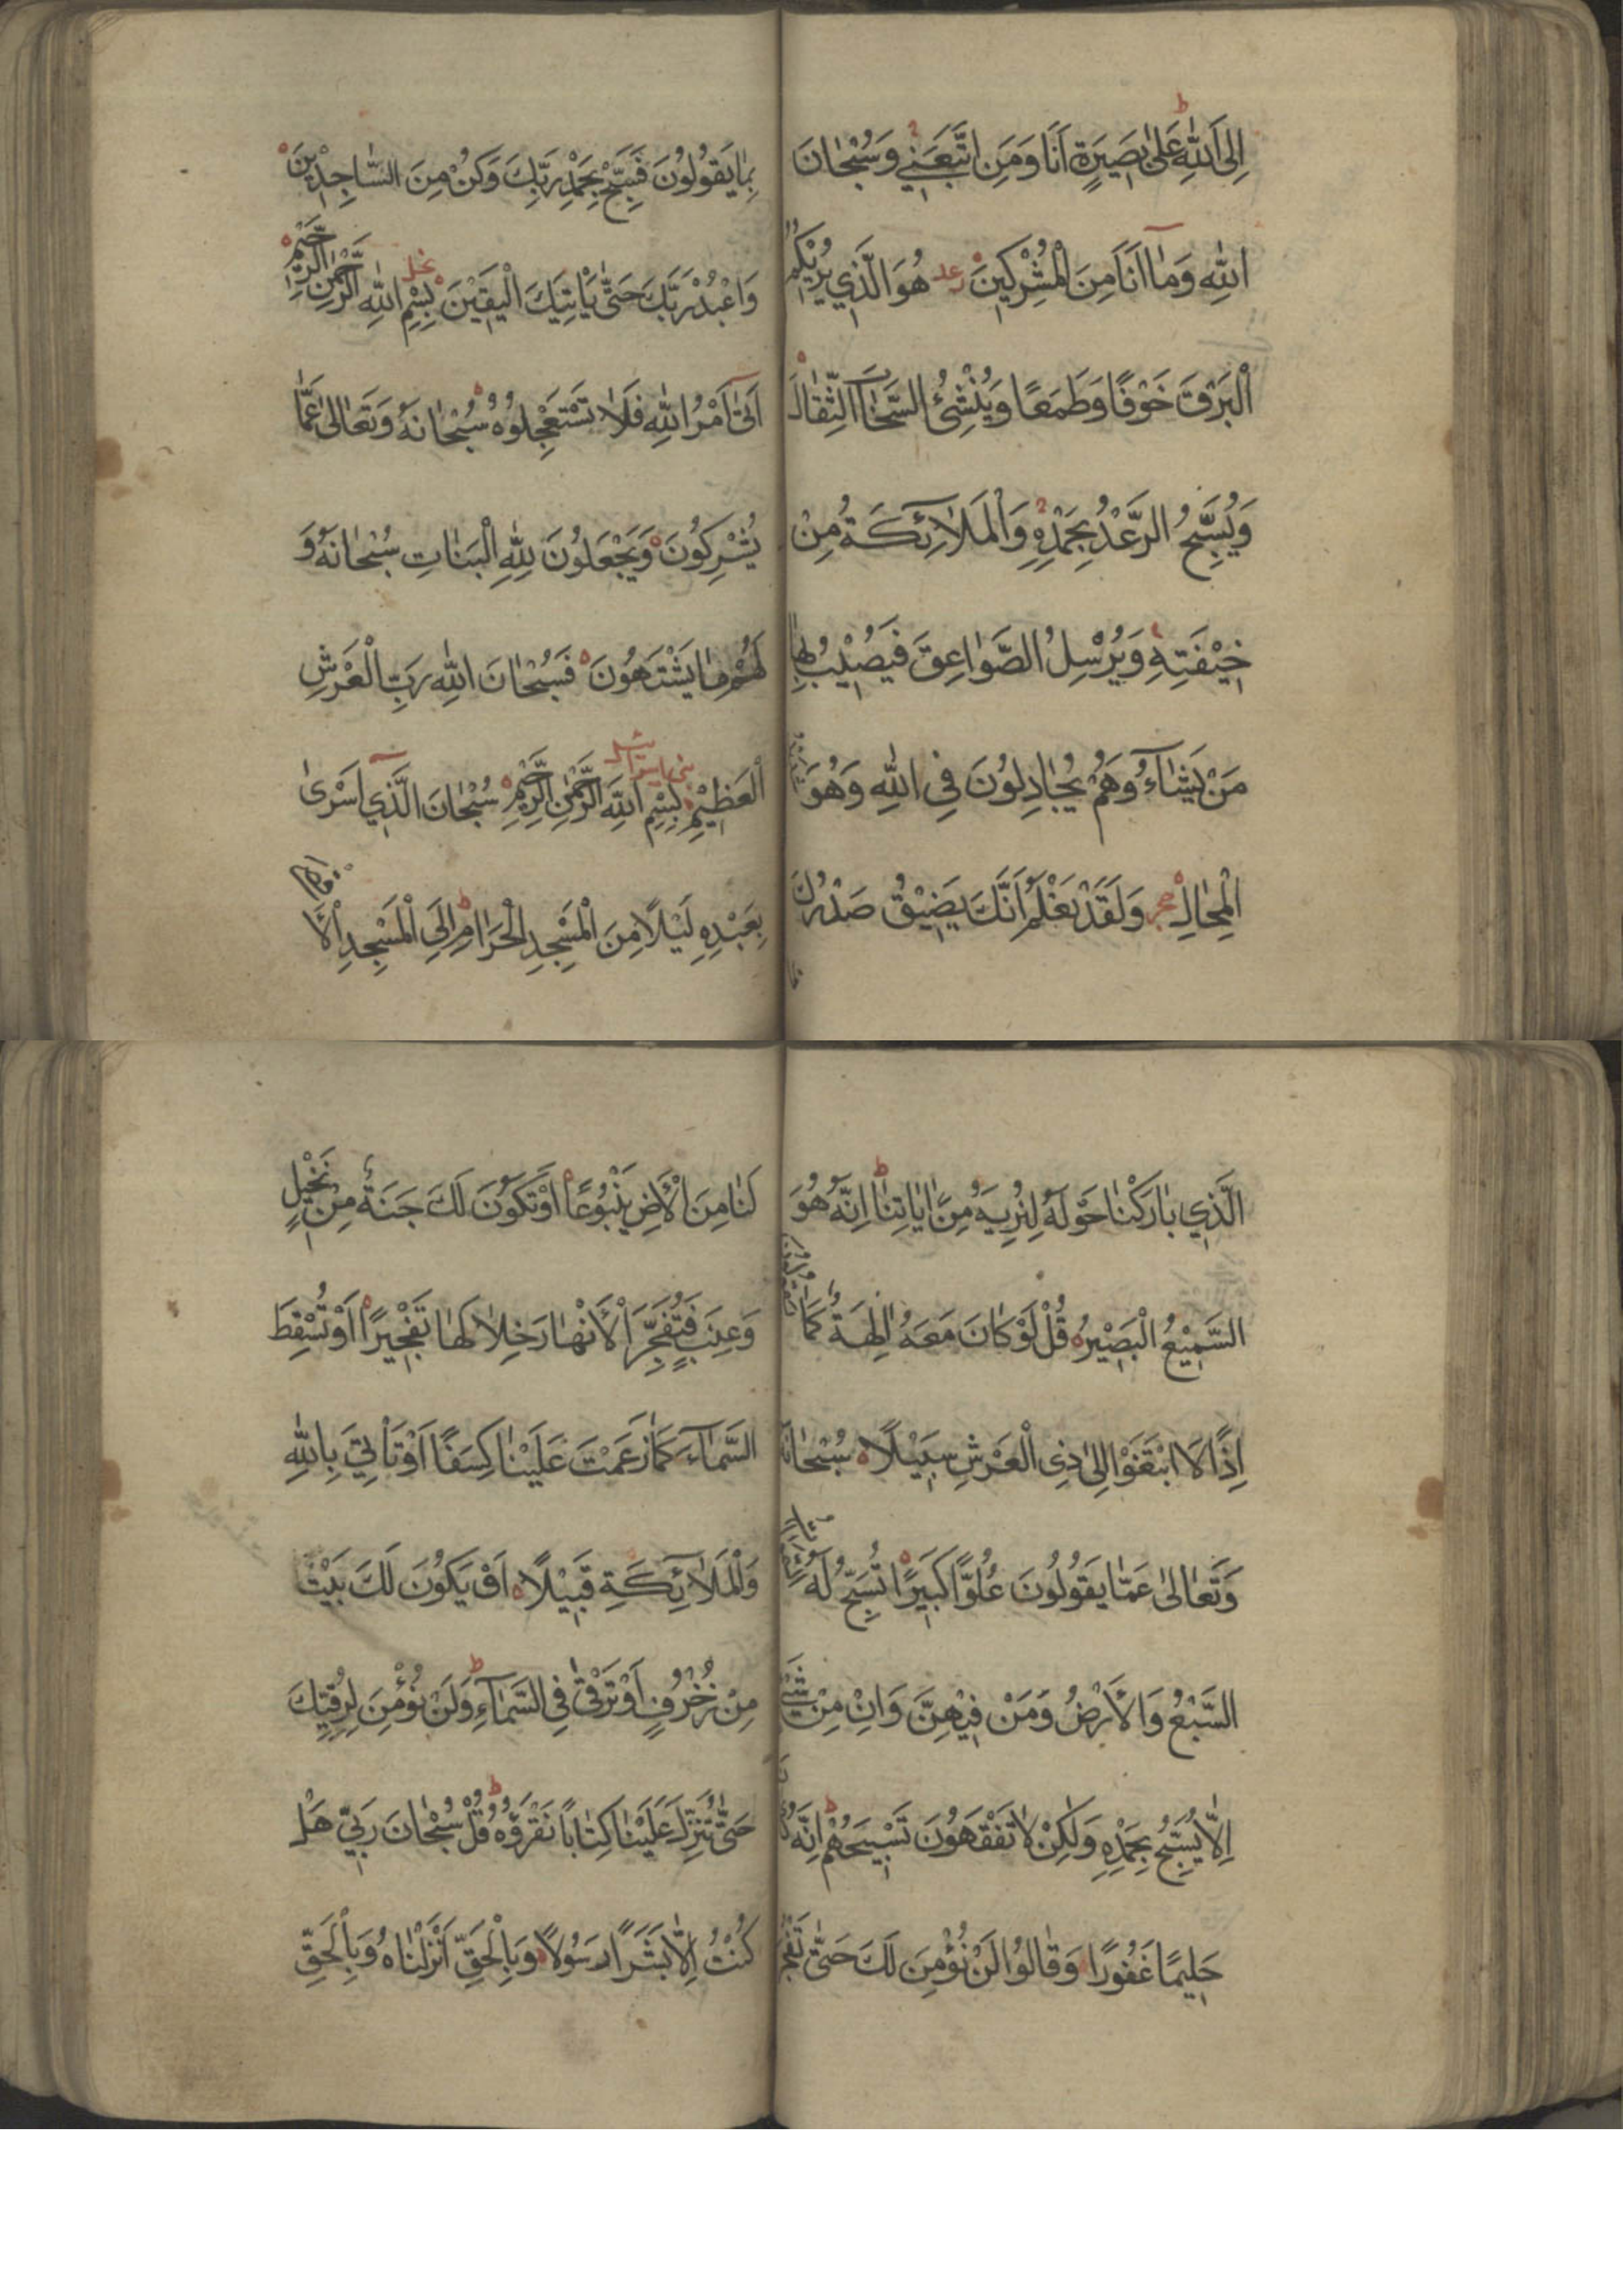 اِلَى اللّٰهِ عَلٰى بَصِيرَةٍ اَنَا وَمَنِ اتَّبَعَنِي وَسُبْحَانَ
اللّٰهِ وَمَا اَنَا مِنَ الْمُشْرِكِينَ رعد هُوَ الَّذِي يُرِيْكُمُ
الْبَرْقَ خَوْفًا وَطَمَعًا وَيُنْشِئُ السَّحَابَ الثِّقَالَ
وَيُسَبِّحُ الرَّعْدُ بِحَمْدِهِ وَالْمَلَائِكَةُ مِنْ
خِيْفَتِهِ وَيُرْسِلُ الصَّوَاعِقَ فَيُصِيْبُ بِهَا
مَنْ يَشَاءُ وَهُمْ يُجَادِلُونَ فِي اللّٰهِ وَهُوَ شَدِيدُ
الْمِحَالِ حجر وَلَقَدْ نَعْلَمُ اَنَّكَ يَضِيْقُ صَدْرُكَ
بِمَا يَقُولُونَ فَسَبِّحْ بِحَمْدِ رَبِّكَ وَكُنْ مِنَ السَّاجِدِيْنَ
وَاعْبُدْ رَبَّكَ حَتّٰى يَاْتِيَكَ الْيَقِيْنَ نحل بِسْمِ اللّٰهِ الرَّحْمٰنِ الرَّحِيْمِ
اَتٰى اَمْرُ اللّٰهِ فَلَا تَسْتَعْجِلُوْهُ سُبْحَانَهُ وَتَعَالٰى عَمَّا
يُشْرِكُونَ وَيَجْعَلُونَ لِلّٰهِ الْبَنَاتِ سُبْحَانَهُ وَ
لَهُمْ مَا يَشْتَهُونَ فَسُبْحَانَ اللّٰهِ رَبِّ الْعَرْشِ
الْعَظِيْمِ بنى اسرائيل بِسْمِ اللّٰهِ الرَّحْمٰنِ الرَّحِيْمِ سُبْحَانَ الَّذِي اَسْرٰى
بِعَبْدِهِ لَيْلًا مِنَ الْمَسْجِدِ الْحَرَامِ اِلَى الْمَسْجِدِ الْاَقْصَا
الَّذِي بَارَكْنَا حَوْلَهُ لِنُرِيَهُ مِنْ اٰيَاتِنَا اِنَّهُ هُوَ
السَّمِيْعُ الْبَصِيْرُ قُلْ لَوْ كَانَ مَعَهُ اٰلِهَةٌ كَمَا يَقُولُونَ
اِذًا لَا ابْتَغَوْا اِلٰى ذِى الْعَرْشِ سَبِيْلًا سُبْحَانَهُ
وَتَعَالٰى عَمَّا يَقُولُونَ عُلُوًّا كَبِيرًا تُسَبِّحُ لَهُ السَّمٰوَاتُ
السَّبْعُ وَالْاَرْضُ وَمَنْ فِيْهِنَّ وَاِنْ مِنْ شَيْءٍ
اِلَّا يُسَبِّحُ بِحَمْدِهِ وَلٰكِنْ لَا تَفْقَهُونَ تَسْبِيْحَهُمْ اِنَّهُ كَانَ
حَلِيمًا غَفُورًا وَقَالُوا لَنْ نُؤْمِنَ لَكَ حَتّٰى تَفْجُرَ
لَنَا مِنَ الْاَرْضِ يَنْبُوعًا اَوْ تَكُونَ لَكَ جَنَّةٌ مِنْ نَخِيْلٍ
وَعِنَبٍ فَتُفَجِّرَ الْاَنْهَارَ خِلَالَهَا تَفْجِيْرًا اَوْ تُسْقِطَ
السَّمَاءَ كَمَا زَعَمْتَ عَلَيْنَا كِسَفًا اَوْ تَاْتِيَ بِاللّٰهِ
وَالْمَلَائِكَةِ قَبِيْلًا اَوْ يَكُونَ لَكَ بَيْتٌ
مِنْ زُخْرُفٍ اَوْ تَرْقٰى فِي السَّمَاءِ وَلَنْ نُؤْمِنَ لِرُقِيِّكَ
حَتّٰى تُنَزِّلَ عَلَيْنَا كِتَابًا نَقْرَؤُهُ قُلْ سُبْحَانَ رَبِّي هَلْ
كُنْتُ اِلَّا بَشَرًا رَسُولًا وَبِالْحَقِّ اَنْزَلْنَاهُ وَبِالْحَقِّ